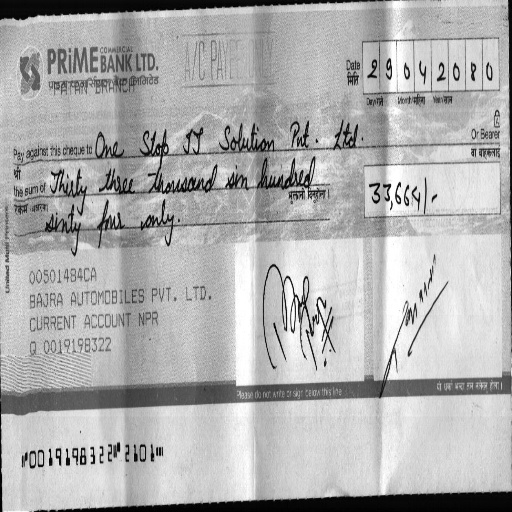 PRIME COMMERCIAL BANK LTD.
PATAN BRANCH
A/C PAYEE ONLY
Date 29042080
मिति
Day/गते Month/महिना Year/साल
Pay against this cheque to One Stop IT Solution Pvt. Ltd. Or Bearer
श्री वा वाहकलाई
the sum of Thirty three thousand six hundred 33,664/-
sixty four only.
00501484CA
BAJRA AUTOMOBILES PVT. LTD.
CURRENT ACCOUNT NPR
Q 0019198322
Please do not write or sign below this line
⑈0019198322⑈ 2101⑈